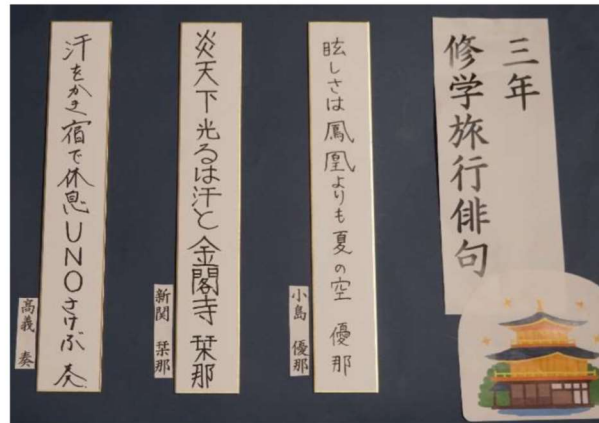 三年
修学旅行俳句
眩しさは鳳凰よりも夏の空 優那
小島 優那
炎天下光るは汗と金閣寺 栞那
新関 栞那
汗をかき宿で休息UNOさけぶ 奏
高義 奏